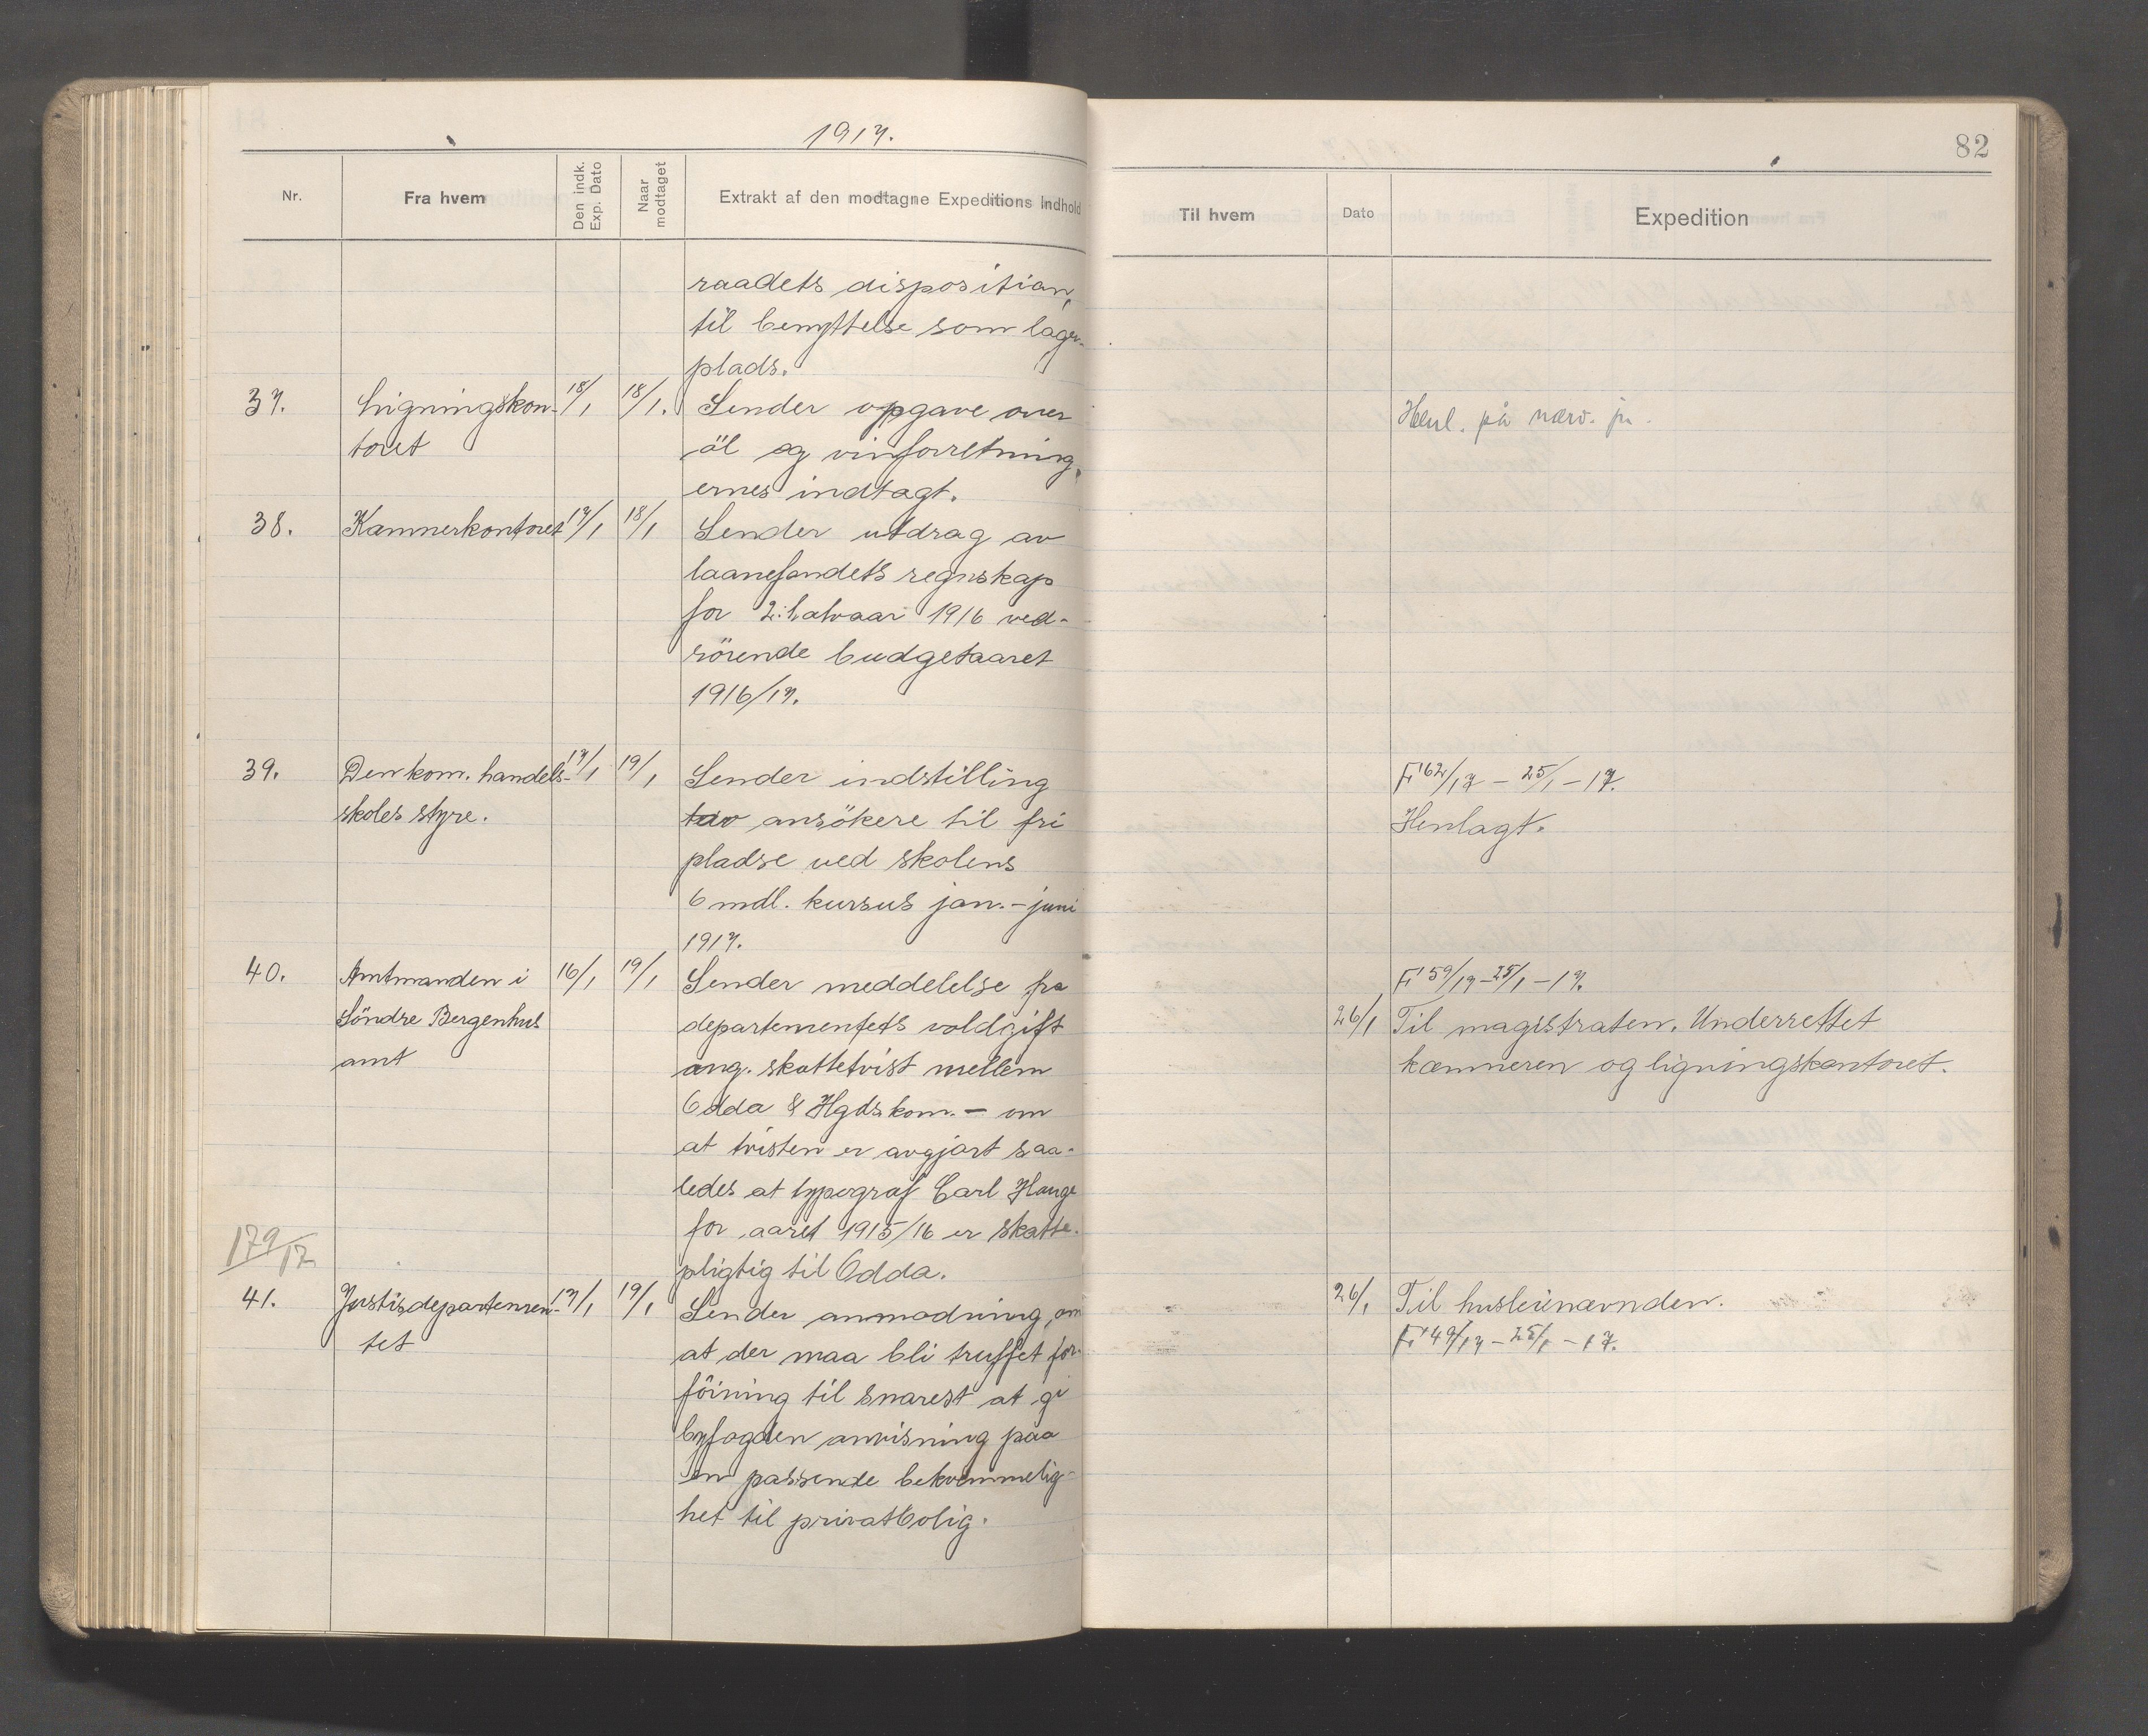 1917.
Nr.
Fra hvem
Den indk. Exp. Dato
Naar modtaget
Extrakt af den modtagne Expeditions Indhold
raadets disposition,
til benyttelse som lager-
plads.
37.
Ligningskon-
toret
18/1
18/1.
Sender opgave over
öl og vinforretning-
ernes indtægt.
38.
Kæmnerkontoret
17/1
18/1
Sender utdrag av
laanefondets regnskap
for 2. halvaar 1916 ved-
rörende budgetaaret
1916/17.
39.
Den kom. handels-
skoles styre.
17/1
19/1
Sender indstilling
av ansökere til fri
pladse ved skolens
6 mdl. kursus jan. - juni
1917.
40.
Amtmanden i
Söndre Bergenhus
amt
16/1
19/1
Sender meddelelse fra
departementets voldgift
ang. skattetvist mellem
Odda & Hgds kom. - om
at tvisten er avgjort saa-
ledes at typograf Carl Hauge
for aaret 1915/16 er skatte-
pligtig til Odda.
179/17
41.
Justisdepartemen-
tet
17/1
19/1
Sender anmodning om
at der maa bli truffet for-
föining til snarest at gi
byfogden anvisning paa
en passende bekvemmelig-
het til privatbolig.
82
Til hvem
Dato
Expedition
Henl. på nærv. jn.
F' 62/17 - 25/1 - 17.
Henlagt.
F' 59/17 - 25/1 - 17.
26/1 Til magistraten. Underrettet
kæmneren og ligningskontoret.
26/1 Til husleienævnden.
F' 49/17 - 25/1 - 17.